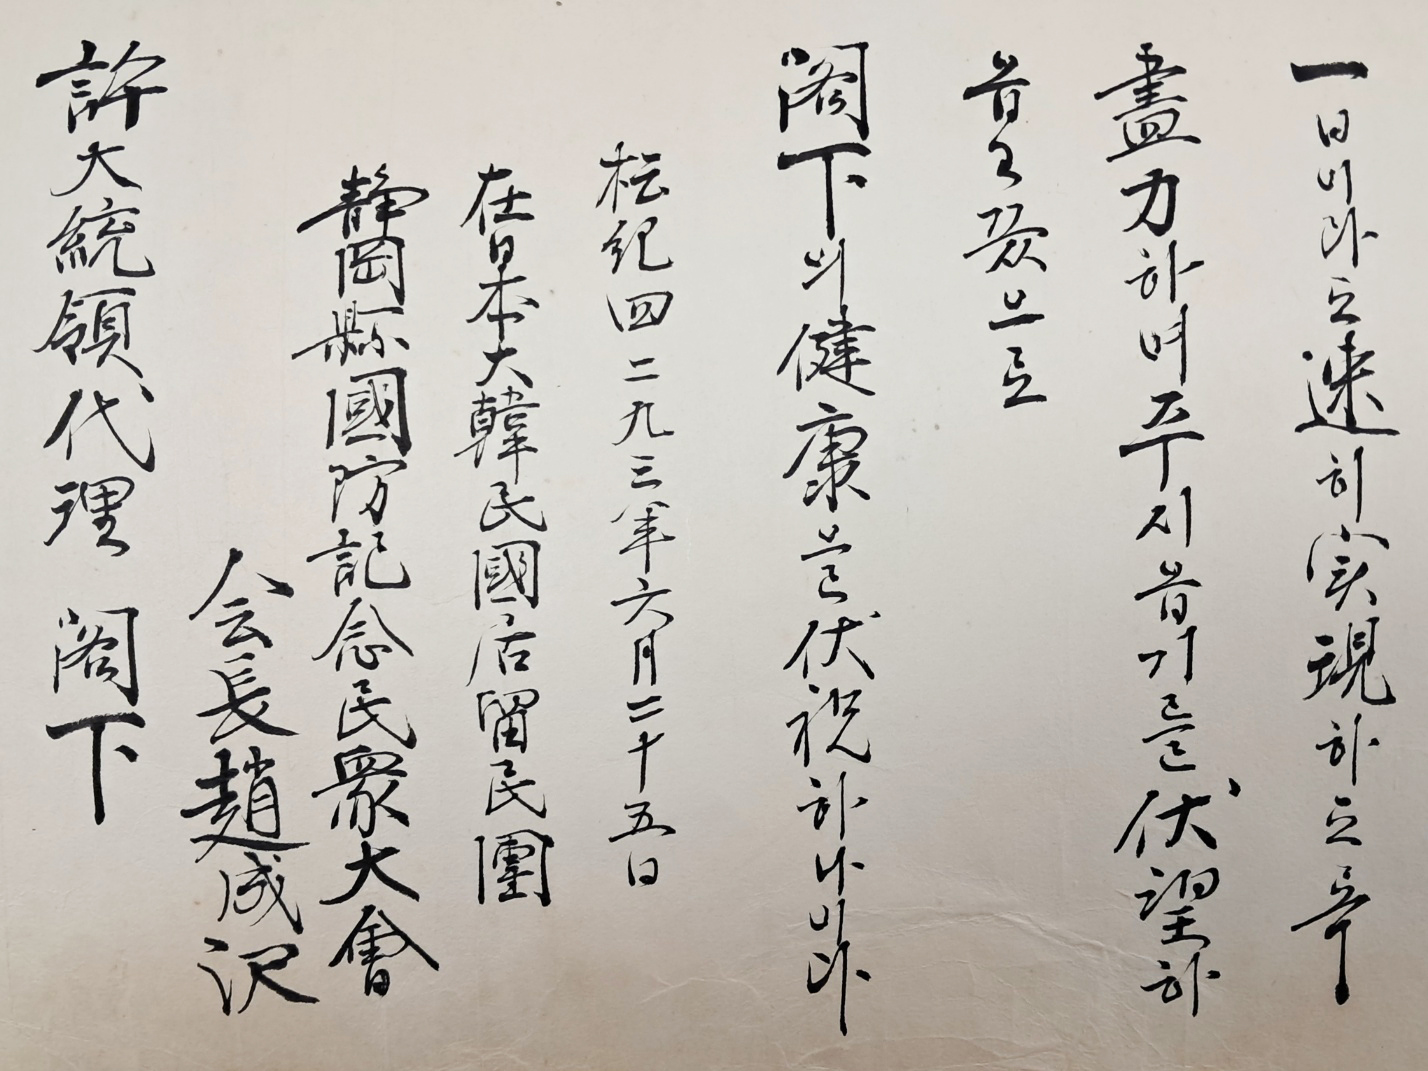 一日이라도速히実現하도록
盡力하여주시옵기를伏望하
옵고끝으로
閣下의健康을伏祝하나이다
枟紀四二九三年六月二十五日
在日本大韓民國居留民團
静岡縣國防記念民衆大會
会長趙成沢
許大統領代理 閣下